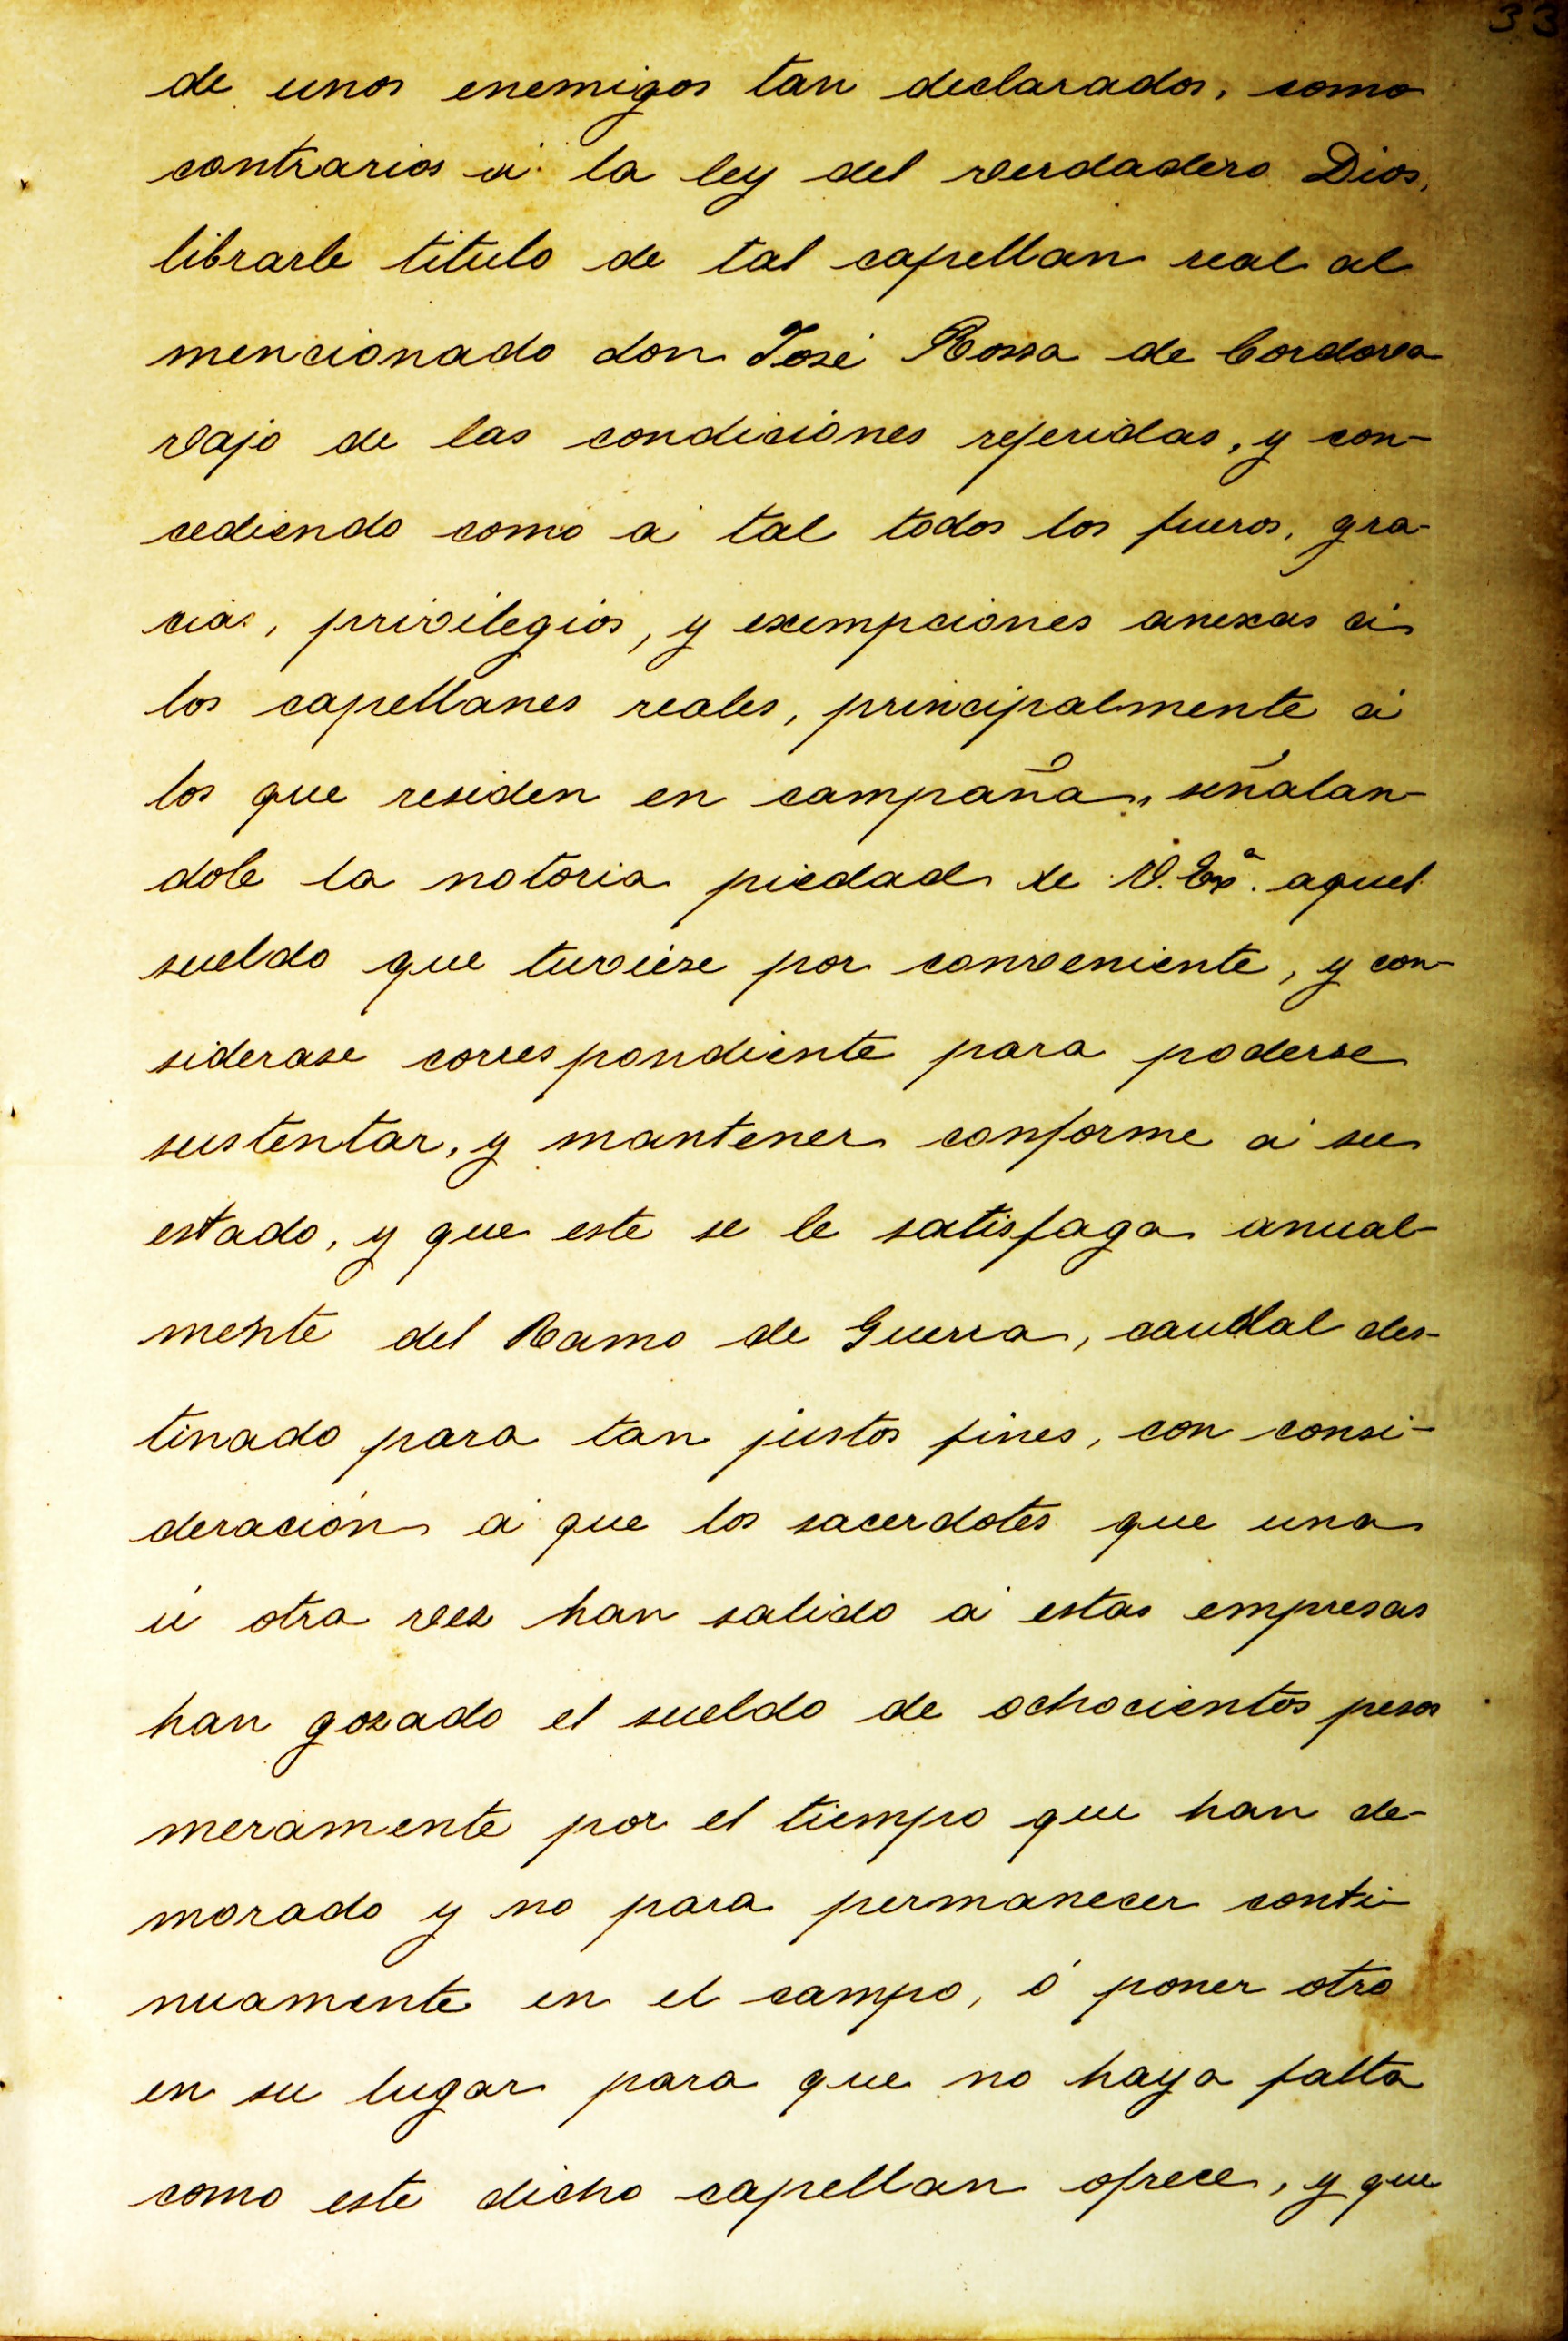 33
de unos enemigos tan declarados, como
contrarios á la ley del verdadero Dios,
librarle titulo de tal capellan real al
mencionado don José Rossa de Cordova
vajo de las condiciones referidas, y con-
cediendo como á tal todos los fueros, gra-
cias, privilegios, y exempciones anexas á
los capellanes reales, principalmente á
los que residen en campaña, señalan-
dole la notoria piedad de V. Exª. aquel
sueldo que tuviese por conveniente, y con-
siderase correspondiente para poderse
sustentar, y mantener conforme á su
estado, y que este se le satisfaga anual-
mente del Ramo de Guerra, caudal des-
tinado para tan justos fines, con consi-
deración á que los sacerdotes que una
ú otra vez han salido á estas empresas
han gozado el sueldo de ochocientos pesos
meramente por el tiempo que han de-
morado y no para permanecer conti-
nuamente en el campo, ó poner otro
en su lugar para que no haya falta
como este dicho capellan ofrece, y que